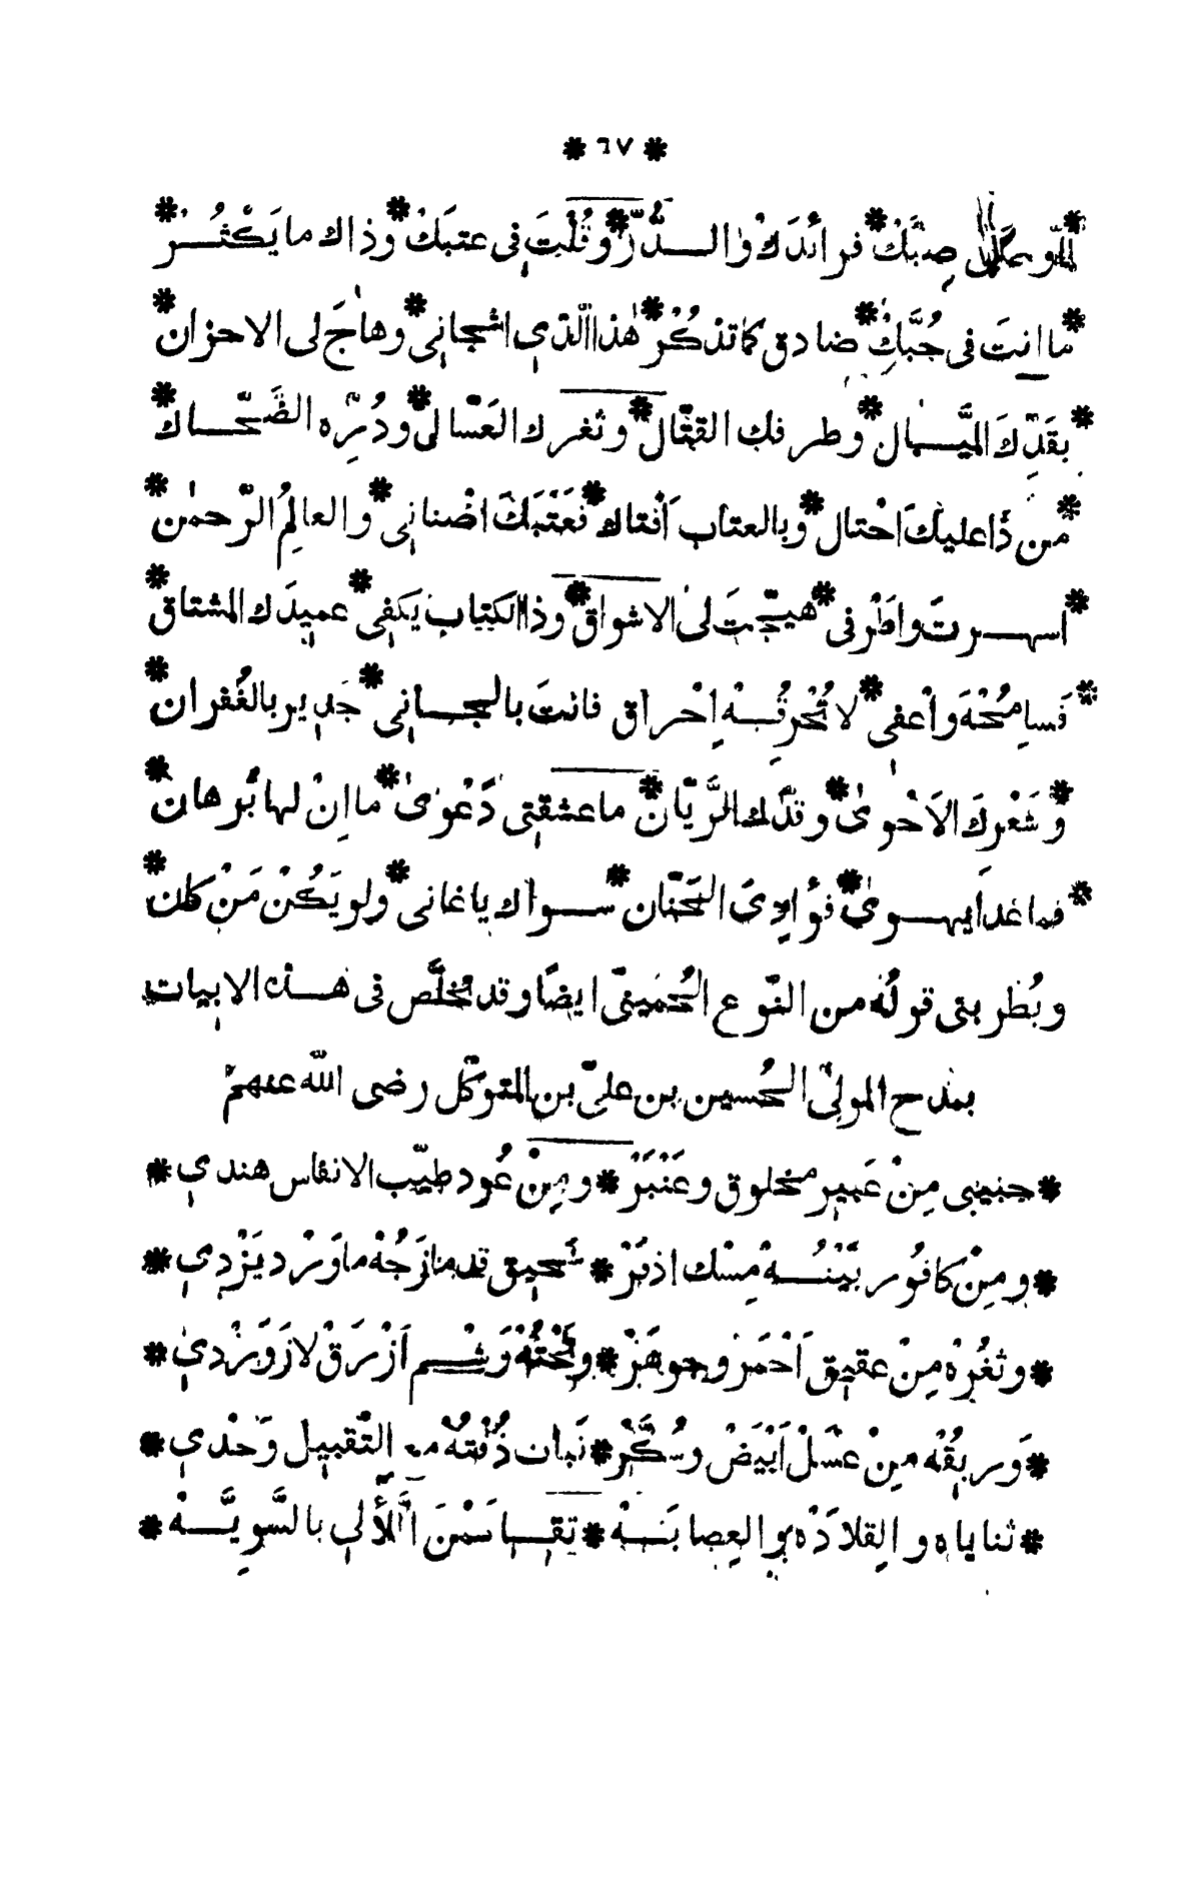 * ٦٧ *
صبَّكْ * فرائدَكْ والـــدُّرّ * وقُلْتَ فى عتبَكْ * وذاك ما يَكْثُــرْ *
* ما انتَ فى حُبَّكِ * صادق كما تذكُرْ * هٰذا الّذي اشجانى * وهاجَ لى الاحزان *
* بقَدِّكَ الميَّـــال * وطرفك القتّال * وثغرك العَسّال * ودُرِّه الضَّحّــاك *
* من ذَا عليكَ احْتال * وبالعتاب اَفْتاك * فعَتَبَكَ اضْنانى * والعالِمُ الرّحمٰن *
* اسهــرتَ واطَرْفى * هيّجتَ لى الاشواق * وذا الكتاب يَكفى * عميدَك المشتاق *
* فَسامِحُهْ وَاْعفى * لا تُحْرِقُــهْ اِحْراق فانتَ بالجــانى * جَدير بالغُفران *
* وشَعْرِكَ الاَحْوىٰ * وقدّك الرَّيّان * ما عشقتى دَعْوىٰ * ما اِنْ لها بُرهان *
* فما غدا يهــوىٰ * فُؤادِىَ الحَنّان * ســواك يا غانى * ولو يَكُنْ مَنْ كان *
وبُطْربنى قولُه من النّوع الحُمَينىّ ايضًا وقد تخلَّص فى هــذه الابيات
بمدح المولىٰ الحُسين بن علىّ بن المتوكّل رضى الله عنهمْ
* حبيبى مِنْ عَبيرِ مخلوق وعَنْبَرْ * ومِنْ عُود طيّب الانفاس هندي *
* ومِنْ كافُور بَيْنُــهْ مِسْك اذفَرْ * سَحيق قد مازَجُهْ ماوَرْد يَزْدِي *
* وثغُرِهْ مِنْ عقيق اَحْمَر وجوهَرْ * وتَحْتُهْ وَشْــم اَزْرَقْ لازَوَرْدي *
* وَريقُهْ مِنْ عسَلْ اَبْيَضْ وسُكَّرْ * نَبات ذُقْتُهْ مع التّقبيل وَحْدي *
* ثناياه والقلادَهْ والعِصابَــهْ * تقــاسَمْنَ اللَّأَلى بالسَّوِيَّــهْ *